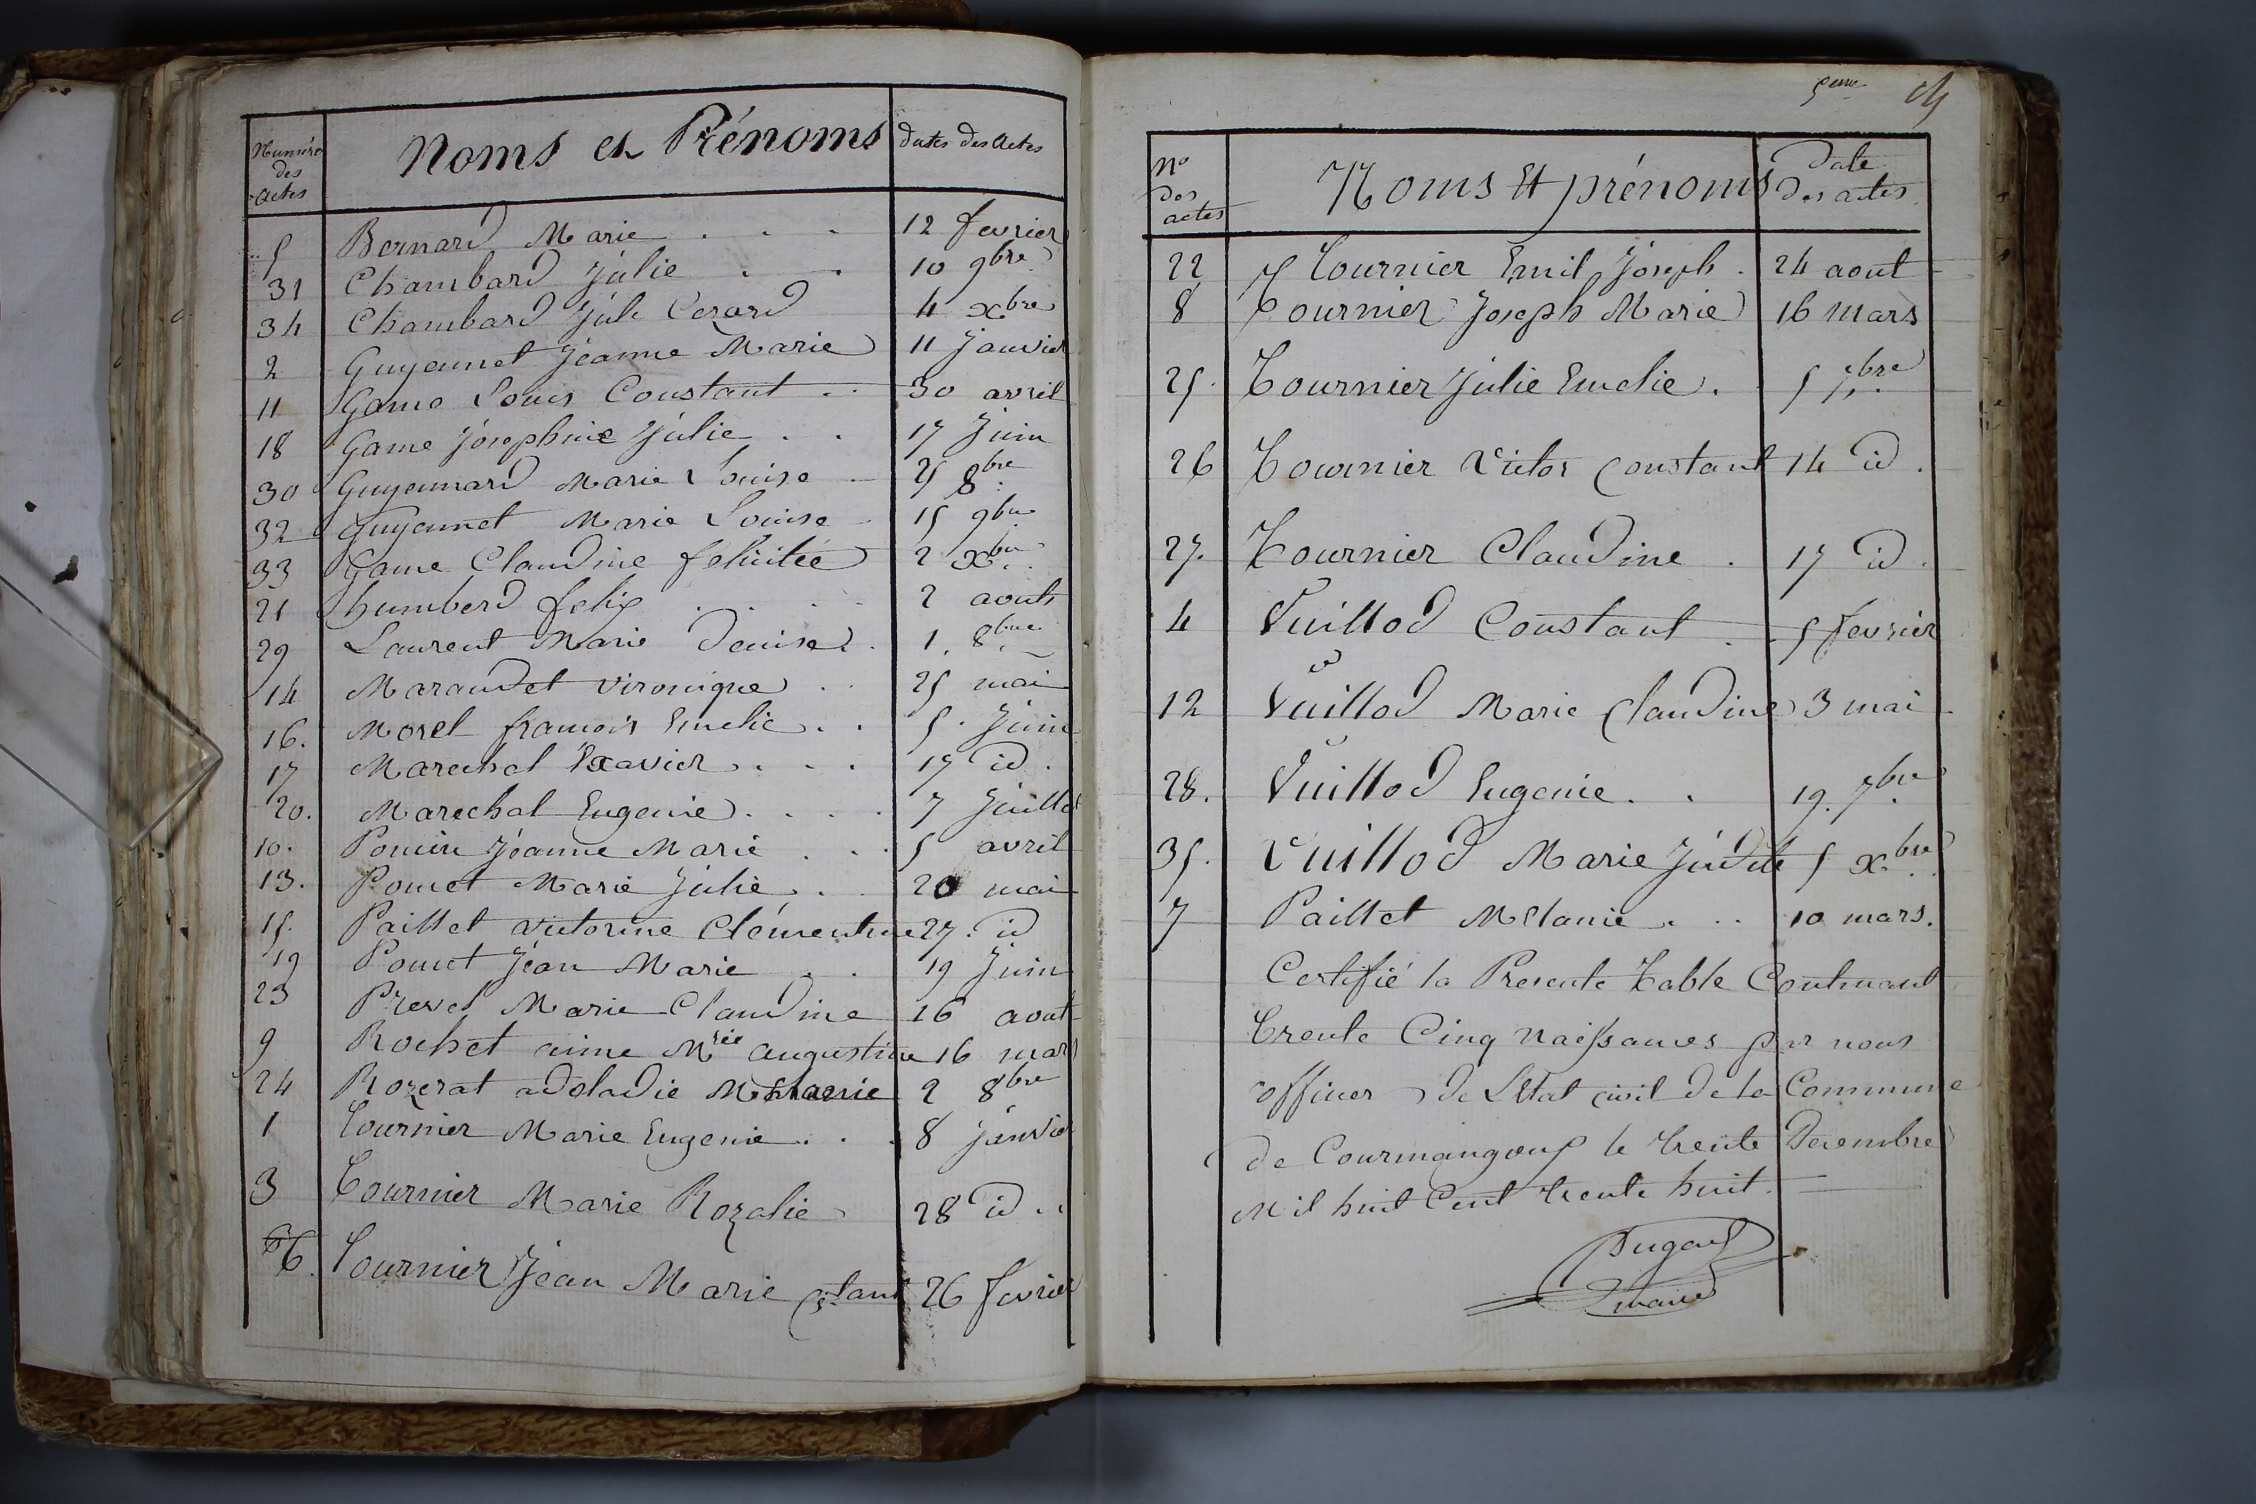 Numéro des Actes Noms et Prénoms dates des Actes
5 Bernard Marie . . . 12 fevrier
31 Chambard Julie . . 10 9bre
34 Chambard Jule Cezard 4 xbre
2 Guyennet Jeanne Marie 11 Janvier
11 Game Louis Constant . . 30 avril
18 Game Josephine Julie . . 17 Juin
30 Guyennard Marie Louise 25 8bre
32 Guyennet Marie Louise 15 9bre
33 Game Claudine felicitée 2 xbre
21 humberd felix . . . . 2 aout
29 Laurent Marie Denise . 1. 8bre
14 Maraudet vironique . . 25 mai
16. Morel francois Emelie . . 5. Juin
17 Marechal Xavier . . . 17 id.
20. Marechal Eugenie . . . . 7 Juillet
10. Jeanne Marie . . . 5 avril
13. Pomet Marie Julie . . 20 mai
15. Paillet victorine Clémentine 27. id
19 Pomet Jean Marie . . 19 Juin
23 Prevel Marie Claudine 26 aout
9 Rochet aime Mrie augustine 16 mars
24 Rozerat adeladie 2 8bre
1 Tournier Marie Eugenie . . . 8 janvier
3 Tournier Marie Rozalie 28 id . .
6. Tournier Jean Marie Cstant 26 fevrier
5eme
No des actes Noms Et prénoms Date des actes
22 Tournier Emil Joseph . 24 aout
8 Tournier Joseph Marie 16 mars
25. Tournier Julie Emelie . 5 7bre
26 Tournier Victor Constant 14 id.
27. Tournier Claudine . 17 id.
4 Vuillod Constant . . 5 fevrier
12 Vuillod Marie Claudine 3 mai
28. Vuillod Eugenie . . 19. 7bre
35. Vuillod Marie Judite 5 xbre
7 Paillet Melanie . . . 10 mars.
Certifié la Presente Table Contenant
trente Cinq naissances par nous
officier de L'Etat civil de la Commune
de Courmangoux le trente Decembre
Mil huit Cent trente huit.
maire